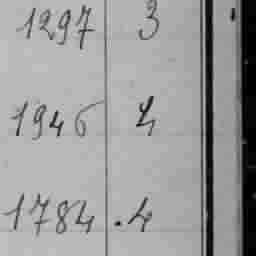 1297 3
1946 4
1784 .4